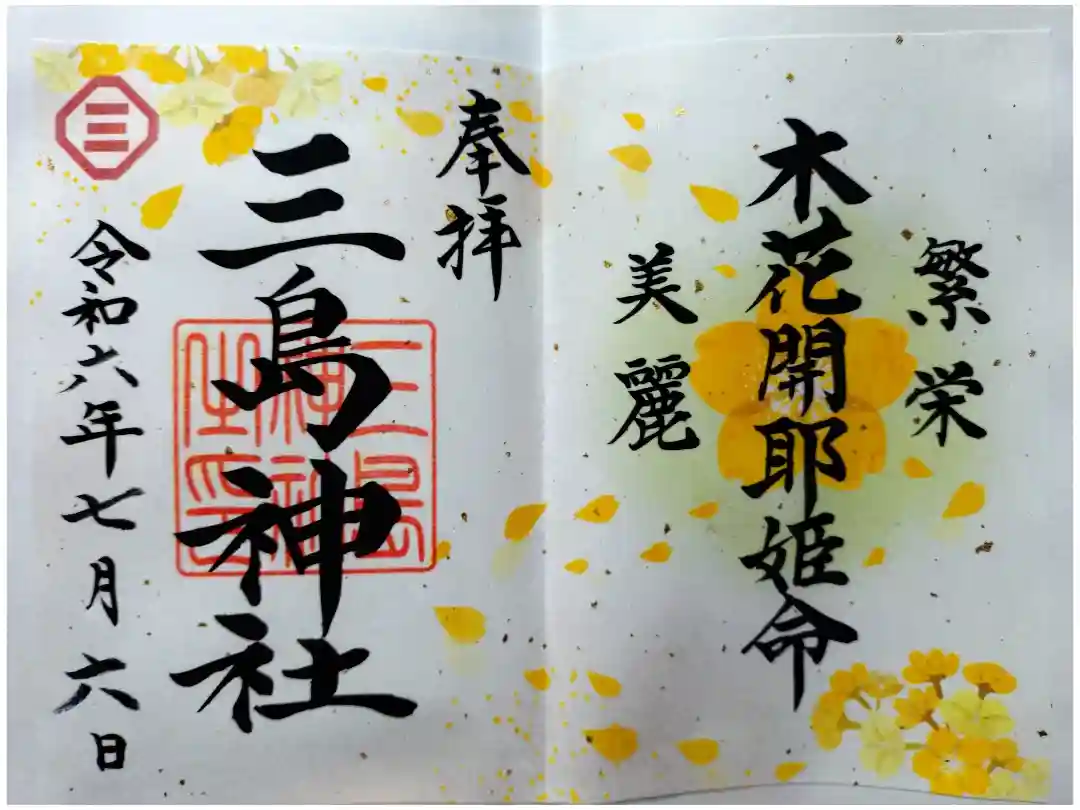 繁栄
木花開耶姫命
美麗
奉拝
三島神社
三島神社之印
令和六年七月六日
三